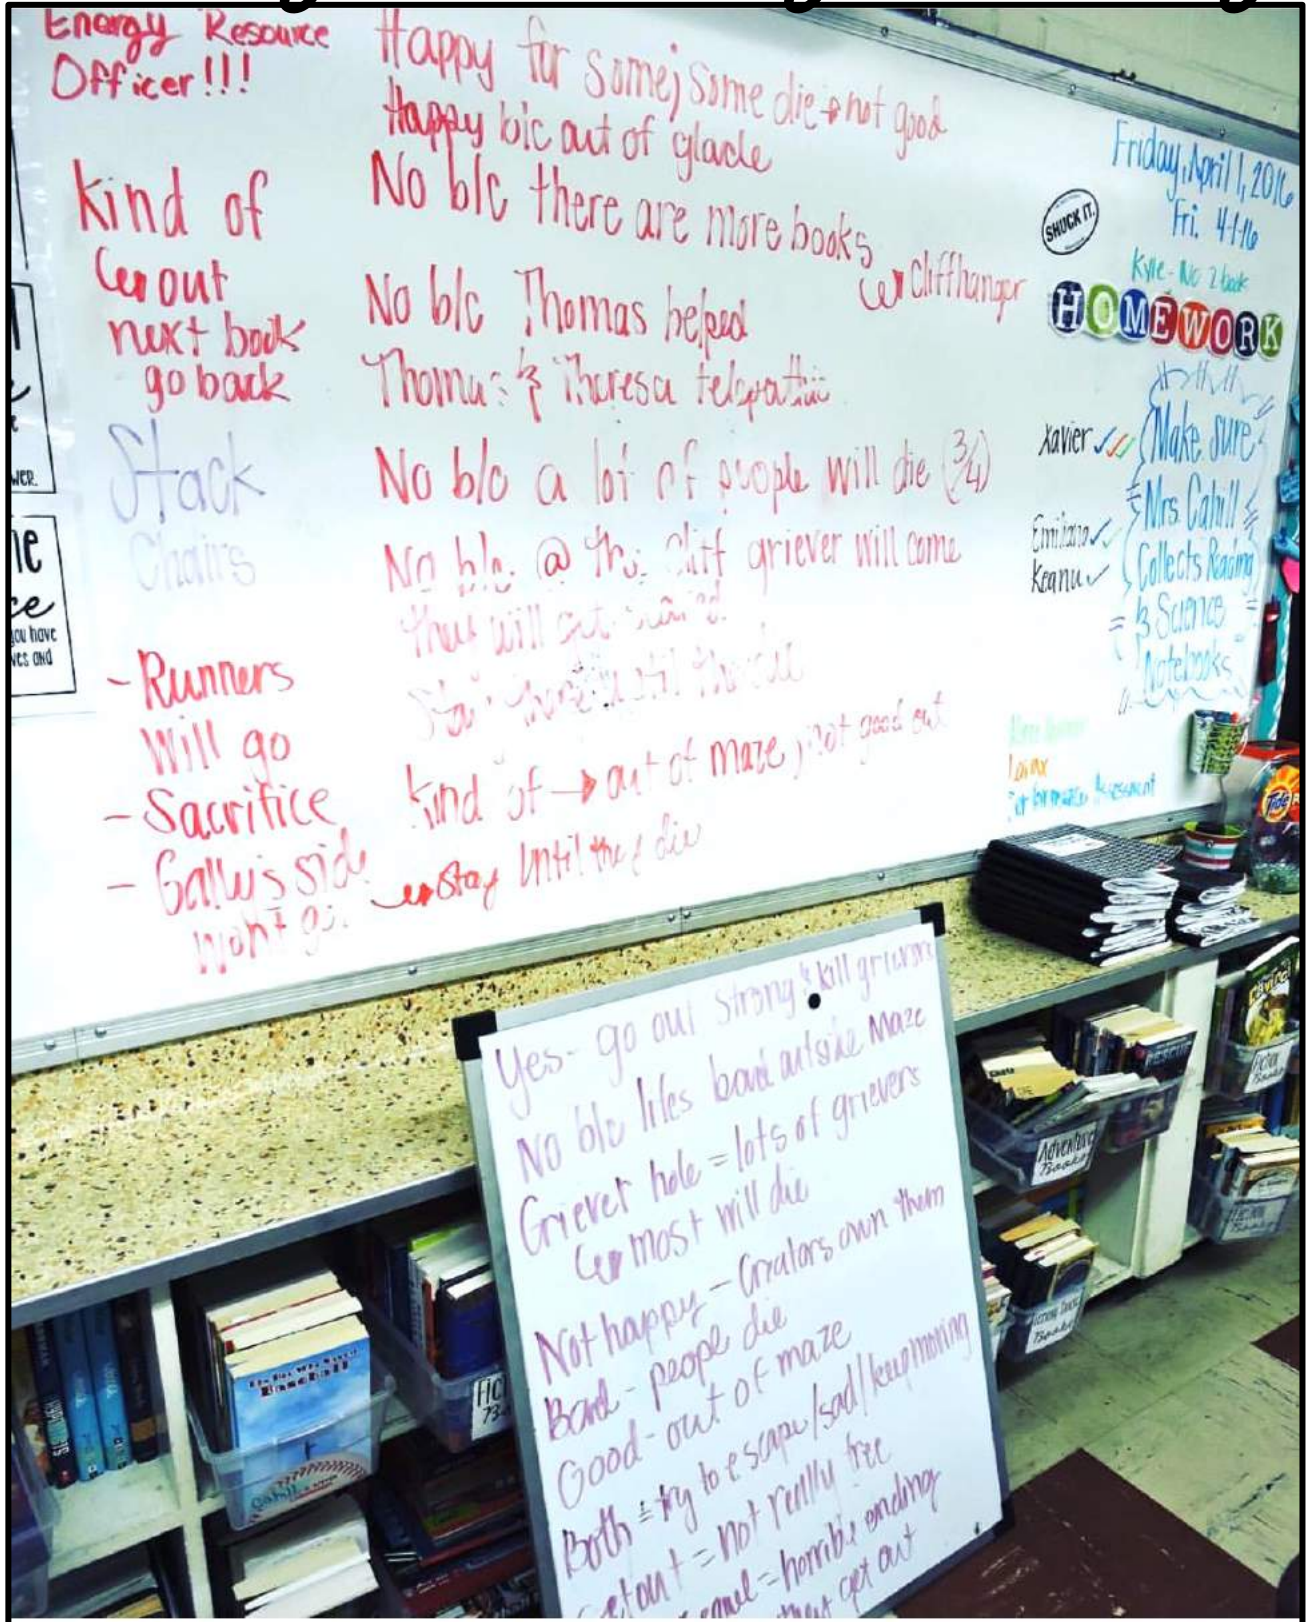 Energy Resource
Officer!!!
Kind of
out
next book
go back
Stack
Chairs
- Runners
will go
- Sacrifice
- Gally's side
won't go.
Happy for some; some die → not good
Happy b/c out of glade
No b/c there are more books
cliffhanger
No b/c Thomas helped
Thomas & Theresa telepathic
No b/c a lot of people will die (3/4)
No b/c @ the cliff griever will come
they will get
until they die
Kind of → out of maze, not good out
Stay until they die
Friday, April 1, 2016
Fri. 4-1-16
SHUCK IT.
Kyle - No 2 book
HOMEWORK
Xavier ✓✓✓
Emiliano ✓
Keanu ✓
Make sure
Mrs. Cahill
Collects Reading
& Science
Notebooks
Lorax
Assessment
Tide
WER.
you have
ves and
Yes - go out strong & kill grievers
No b/c lifes bad outside Maze
Griever hole = lots of grievers
most will die
Not happy - Creators own them
Bad - people die
Good - out of maze
Both = try to escape/sad/keep moving
Get out = not really free
= horrible ending
they get out
Adventure
Books
Fiction
Books
RESCUE
Baseball
Cahill